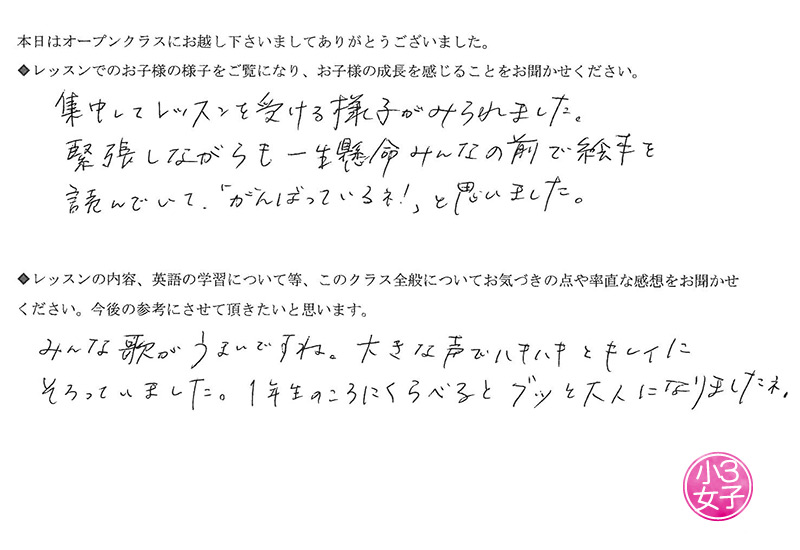 本日はオープンクラスにお越し下さいましてありがとうございました。
◆レッスンでのお子様の様子をご覧になり、お子様の成長を感じることをお聞かせください。
集中してレッスンを受ける様子がみられました。
緊張しながらも一生懸命みんなの前で絵本を
読んでいて、「がんばっているネ!」と思いました。
◆レッスンの内容、英語の学習について等、このクラス全般についてお気づきの点や率直な感想をお聞かせ
ください。今後の参考にさせて頂きたいと思います。
みんな歌がうまいですね。大きな声でハキハキとキレイに
そろっていました。1年生のころにくらべるとグッと大人になりましたネ。
小3
女子